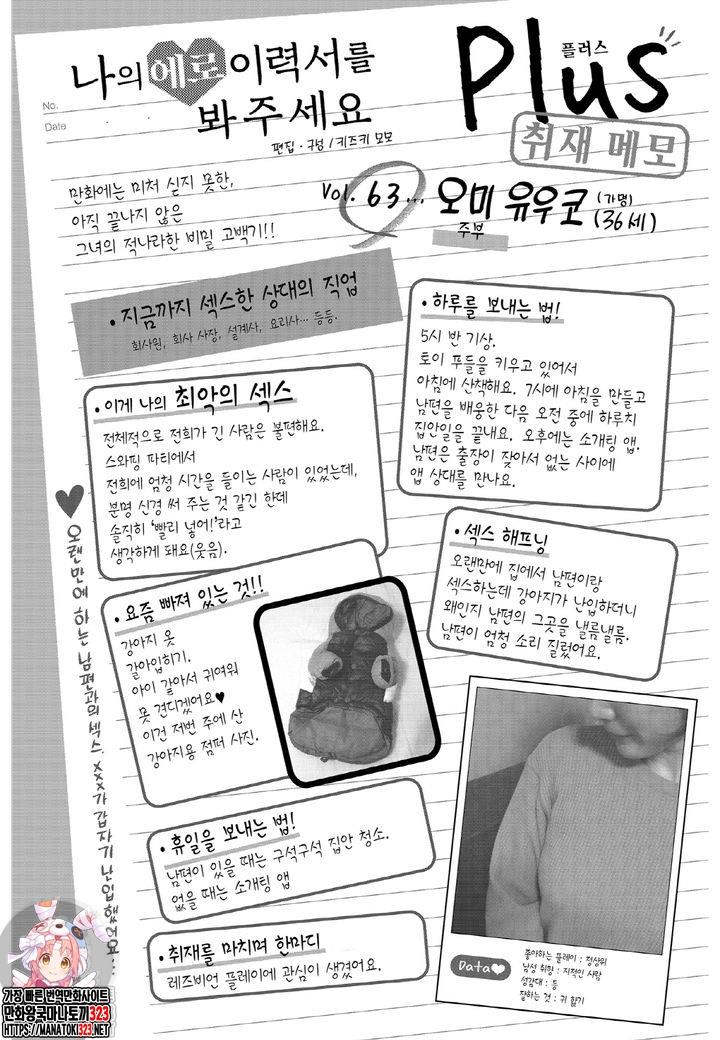 나의 에로 이력서를
봐 주세요
편집·구성 / 키즈키 모모
Plus
플러스
취재 메모
No.
Date
만화에는 미처 싣지 못한,
아직 끝나지 않은
그녀의 적나라한 비밀 고백기!!
Vol. 63... 오미 유우코 (가명)
(36세)
주부
• 지금까지 섹스한 상대의 직업
회사원, 회사 사장, 설계사, 요리사... 등등.
• 하루를 보내는 법!
5시 반 기상.
토이 푸들을 키우고 있어서
아침에 산책해요. 7시에 아침을 만들고
남편을 배웅한 다음 오전 중에 하루치
집안일을 끝내요. 오후에는 소개팅 앱.
남편은 출장이 잦아서 없는 사이에
앱 상대를 만나요.
• 이게 나의 최악의 섹스
전체적으로 전희가 긴 사람은 불편해요.
스와핑 파티에서
전희에 엄청 시간을 들이는 사람이 있었는데,
분명 신경 써 주는 것 같긴 한데
솔직히 '빨리 넣어!'라고
생각하게 돼요(웃음).
• 섹스 해프닝
오랜만에 집에서 남편이랑
섹스하는데 강아지가 난입하더니
왜인지 남편의 그곳을 낼름낼름.
남편이 엄청 소리 질렀어요.
• 요즘 빠져 있는 것!!
강아지 옷
갈아입히기.
아이 같아서 귀여워
못 견디겠어요♥
이건 저번 주에 산
강아지용 점퍼 사진.
♥ 오랜만에 하는 남편과의 섹스. XXX가 갑자기 난입했어요...
• 휴일을 보내는 법!
남편이 있을 때는 구석구석 집안 청소.
없을 때는 소개팅 앱
• 취재를 마치며 한마디
레즈비언 플레이에 관심이 생겼어요.
Data♥
좋아하는 플레이 : 정상위
남성 취향 : 지적인 사람
성감대 : 등
잘하는 것 : 귀 핥기
가장 빠른 번역만화사이트
만화왕국마나토끼323
HTTPS://MANATOKI323.NET